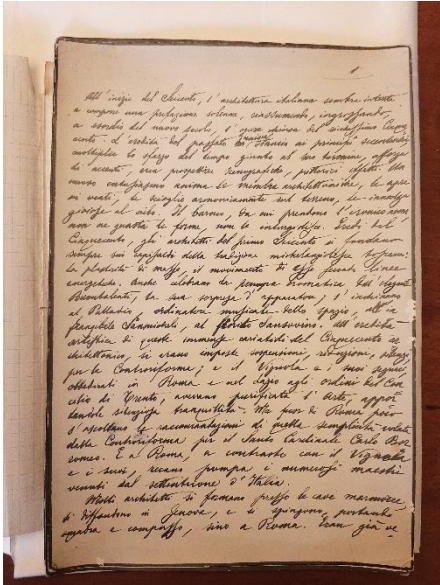 1
All'inizio del Seicento, l'architettura italiana sembra intenta
a comporre una prefazione solenne, riassumendo, ingrossando,
a esordio del nuovo secolo, l'opera del Cinque
cento. L'eredità del passato ai principi secenteschi
moltiplica lo sfarzo del tempo giunto al suo termine, afforza
gli accenti, crea prospettive scenografiche, pittorici effetti. Un
mosso entusiasmo anima le membra architettoniche, le apre
ai venti, le scioglie armoniosamente sul terreno, le innalza
gioiose al cielo. Il barocco, da cui prendono l'ironico nome,
non ne guasta le forme, non le intorpidisce. Eredi del
Cinquecento, gli architetti del primo Seicento si fondano
sempre sui capisaldi della tradizione michelangiolesca:
la plasticità di masse, il movimento di esse, linea
energetica. Anche celebrano la pompa dromatica del
Buontalenti, la sua sorpresa d'apparatore, s'inchinano
al Palladio, ordinatore musicale dello spazio, all'in
frangibile Sanmicheli, al florido Sansovino. All'eredità
artistica di queste immense cariatidi del Cinquecento ar
chitettonico, si erano imposte sospensioni, riduzioni, silenzi
per la Controriforma; e il Vignola e i suoi seguaci,
obbedienti in Roma e nel Lazio agli ordini del Con
cilio di Trento, avevano purificata l'arte, appor
tandole tranquillità. Ma fuor di Roma poco
s'ascoltano le raccomandazioni di questa semplicità voluta
dalla Controriforma per il Santo Cardinale Carlo Bor
romeo. E a Roma, a contrasto con il Vignola
e i suoi, recano pompa i numerosi maestri
venuti dal settentrione d'Italia.
Molti architetti si formano presso le cave marmoree
si diffondono in Genova, e si spingono, portando
squadra e compasso, sino a Roma. Eran già ve